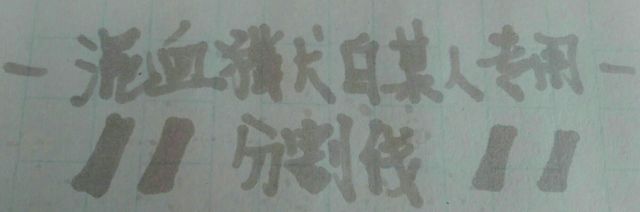 - 混血猎犬白某人专用 -
// 分割线 //